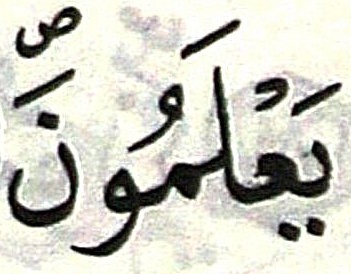 يَعْلَمُونَ ص